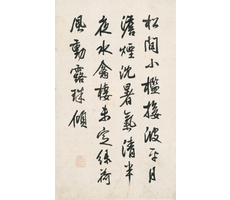 松間小檻接波平月
澹煙沈暑氣清半
夜水禽棲未定綠荷
風動露珠傾